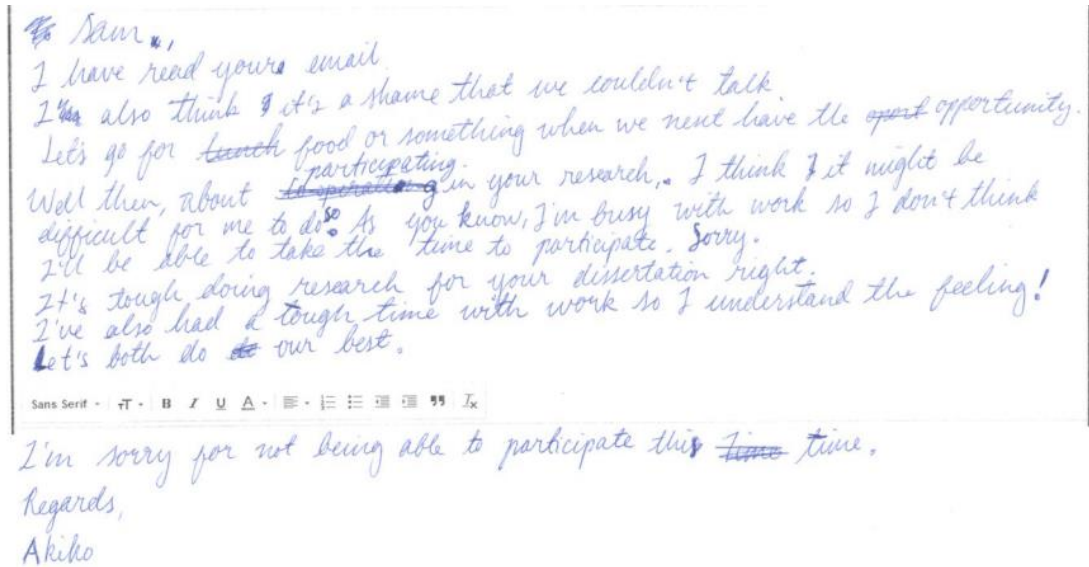 Sam.,
I have read your email.
I also think it's a shame that we couldn't talk
Let's go for lunch food or something when we next have the oport opportunity.
participating.
Well then, about in your research,. I think it might be
difficult for me to do so. As you know, I'm busy with work so I don't think
I'll be able to take the time to participate. Sorry.
It's tough doing research for your dissertation right.
I've also had a tough time with work so I understand the feeling!
Let's both do our best.
Sans Serif TT B I U A
I'm sorry for not being able to participate this time time.
Regards,
Akiko